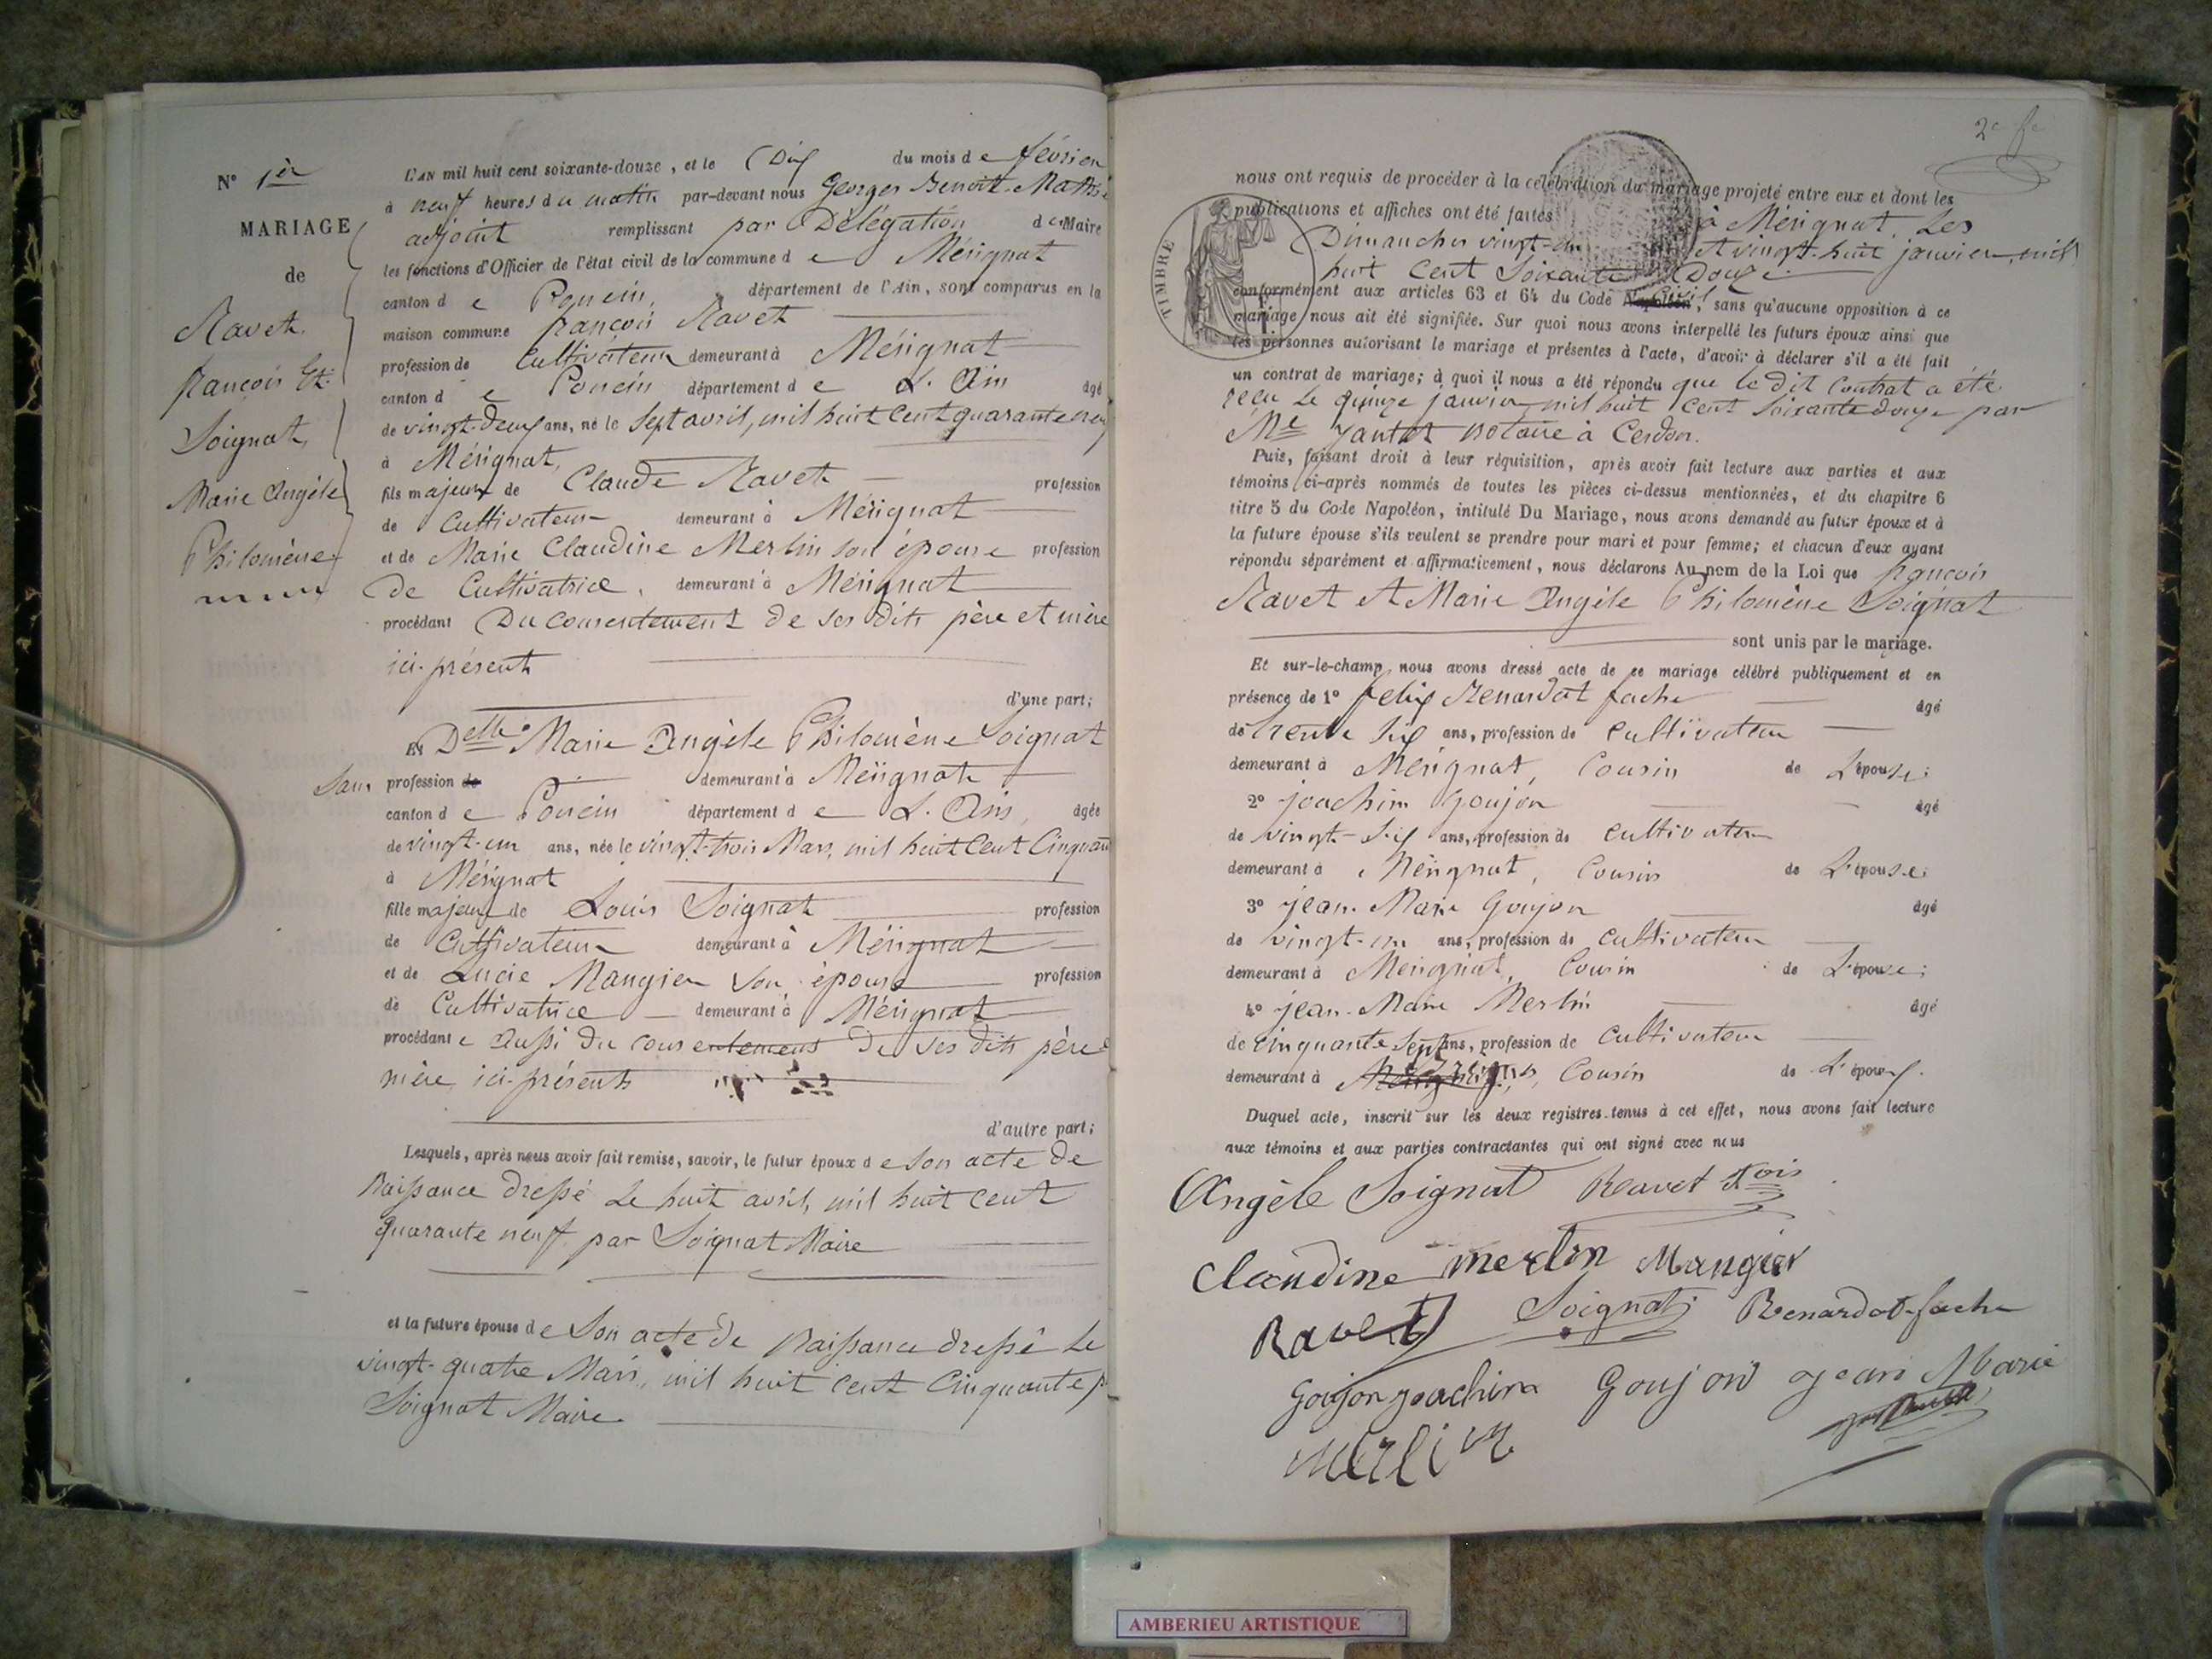 N° 1er
MARIAGE
de
Ravet
françois Et
Soignat,
Marie Angèle
Philomène
L'AN mil huit cent soixante-douze, et le Dix du mois de février
à neuf heures du matin par-devant nous Georges Benoit Mathi
adjoint remplissant par Délégation de Maire
les fonctions d'Officier de l'état civil de la commune de Mérignat
canton de Poncin, département de l'Ain, sont comparus en la
maison commune françois Ravet
profession de Cultivateur demeurant à Mérignat
canton de Poncin département de L'Ain âgé
de vingt-deux ans, né le sept avril, mil huit cent quarante neuf
à Mérignat,
fils majeur de Claude Ravet profession
de Cultivateur demeurant à Mérignat
et de Marie Claudine Merlin son épouse profession
de Cultivatrice, demeurant à Mérignat
procédant Du consentement de ses dits père et mère
ici-présent
d'une part;
Et Delle Marie Angèle Philomène Soignat
Sans profession de demeurant à Mérignat
canton de Poncin département de L'Ain, âgée
de vingt-un ans, née le vingt-trois Mars, mil huit Cent Cinquan
à Mérignat
fille majeure de Louis Soignat profession
de Cultivateur demeurant à Mérignat
et de Lucie Mangier son épouse profession
de Cultivatrice demeurant à Mérignat
procédante aussi du consentement de ses dits père
mère, ici-présents
d'autre part;
Lesquels, après nous avoir fait remise, savoir, le futur époux de son acte de
Naissance dressé Le huit avril, mil huit cent
quarante neuf par Soignat Maire
et la future épouse de Son acte de Naissance dressé Le
vingt-quatre Mars, mil huit cent Cinquante p
Soignat Maire
2e fe
nous ont requis de procéder à la célébration du mariage projeté entre eux et dont les
publications et affiches ont été faites à Mérignat, Les
Dimanches vingt-un Et vingt-huit janvier, mil
huit Cent Soixante Douze.
TIMBRE
conformément aux articles 63 et 64 du Code Napoléon Civil, sans qu'aucune opposition à ce
mariage nous ait été signifiée. Sur quoi nous avons interpellé les futurs époux ainsi que
les personnes autorisant le mariage et présentes à l'acte, d'avoir à déclarer s'il a été fait
un contrat de mariage; à quoi il nous a été répondu que le dit Contrat a été
reçu Le quinze janvier, mil huit Cent Soixante douze par
Me Jantet notaire à Cerdon.
Puis, faisant droit à leur réquisition, après avoir fait lecture aux parties et aux
témoins ci-après nommés de toutes les pièces ci-dessus mentionnées, et du chapitre 6
titre 5 du Code Napoléon, intitulé Du Mariage, nous avons demandé au futur époux et à
la future épouse s'ils veulent se prendre pour mari et pour femme; et chacun d'eux ayant
répondu séparément et affirmativement, nous déclarons Au nom de la Loi que françois
Ravet et Marie Angèle Philomène Soignat
sont unis par le mariage.
Et sur-le-champ, nous avons dressé acte de ce mariage célébré publiquement et en
présence de 1° felix Renardat fache âgé
de trente six ans, profession de Cultivateur
demeurant à Mérignat, Cousin de L'épouse;
2° joachim Goujon âgé
de vingt-six ans, profession de cultivateur
demeurant à Mérignat, Cousin de L'épouse;
3° jean-Marie Goujon âgé
de vingt-un ans, profession de Cultivateur
demeurant à Mérignat, Cousin de L'épouse;
4° jean-Marie Merlin âgé
de Cinquante Sept ans, profession de Cultivateur
demeurant à Cousin de L'époux.
Duquel acte, inscrit sur les deux registres tenus à cet effet, nous avons fait lecture
aux témoins et aux parties contractantes qui ont signé avec nous
Angèle Soignat Ravet fois
Claudine merlin Mangier
Ravet Soignat Renardat-fache
Goujon joachim Goujon jean Marie
Merlin
AMBERIEU ARTISTIQUE